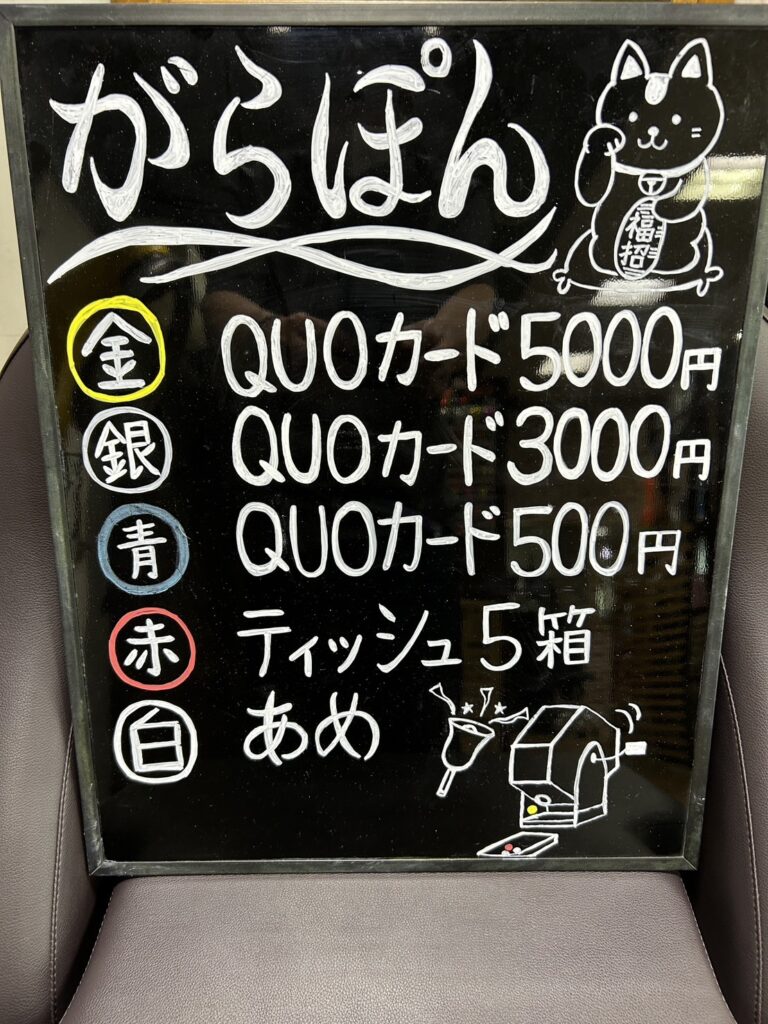 がらぽん
福招
金 QUOカード5000円
銀 QUOカード3000円
青 QUOカード500円
赤 ティッシュ5箱
白 あめ